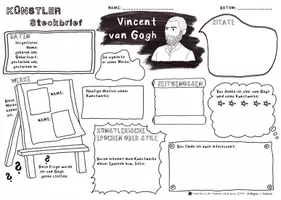 KÜNSTLER
Steckbrief
NAME:
DATUM:
Vincent
van Gogh
ZITATE
DATEN
Bürgerlicher
Name:
geboren am:
Geburtsort:
gestorben am:
gestorben in:
So signierte
er seine Werke:
WERKE
NAME:
NAME:
Häufige Motive seiner
Kunstwerke:
ZEITGENOSSEN
Das denke ich über van Gogh
und seine Kunstwerke:
KÜNSTLERISCHE
EPOCHEN ODER STILE
Daran erkennt man Kunstwerke
dieser Epochen bzw. Stile:
Das finde ich auch interessant:
Diese Frage würde
ich van Gogh
gerne stellen: